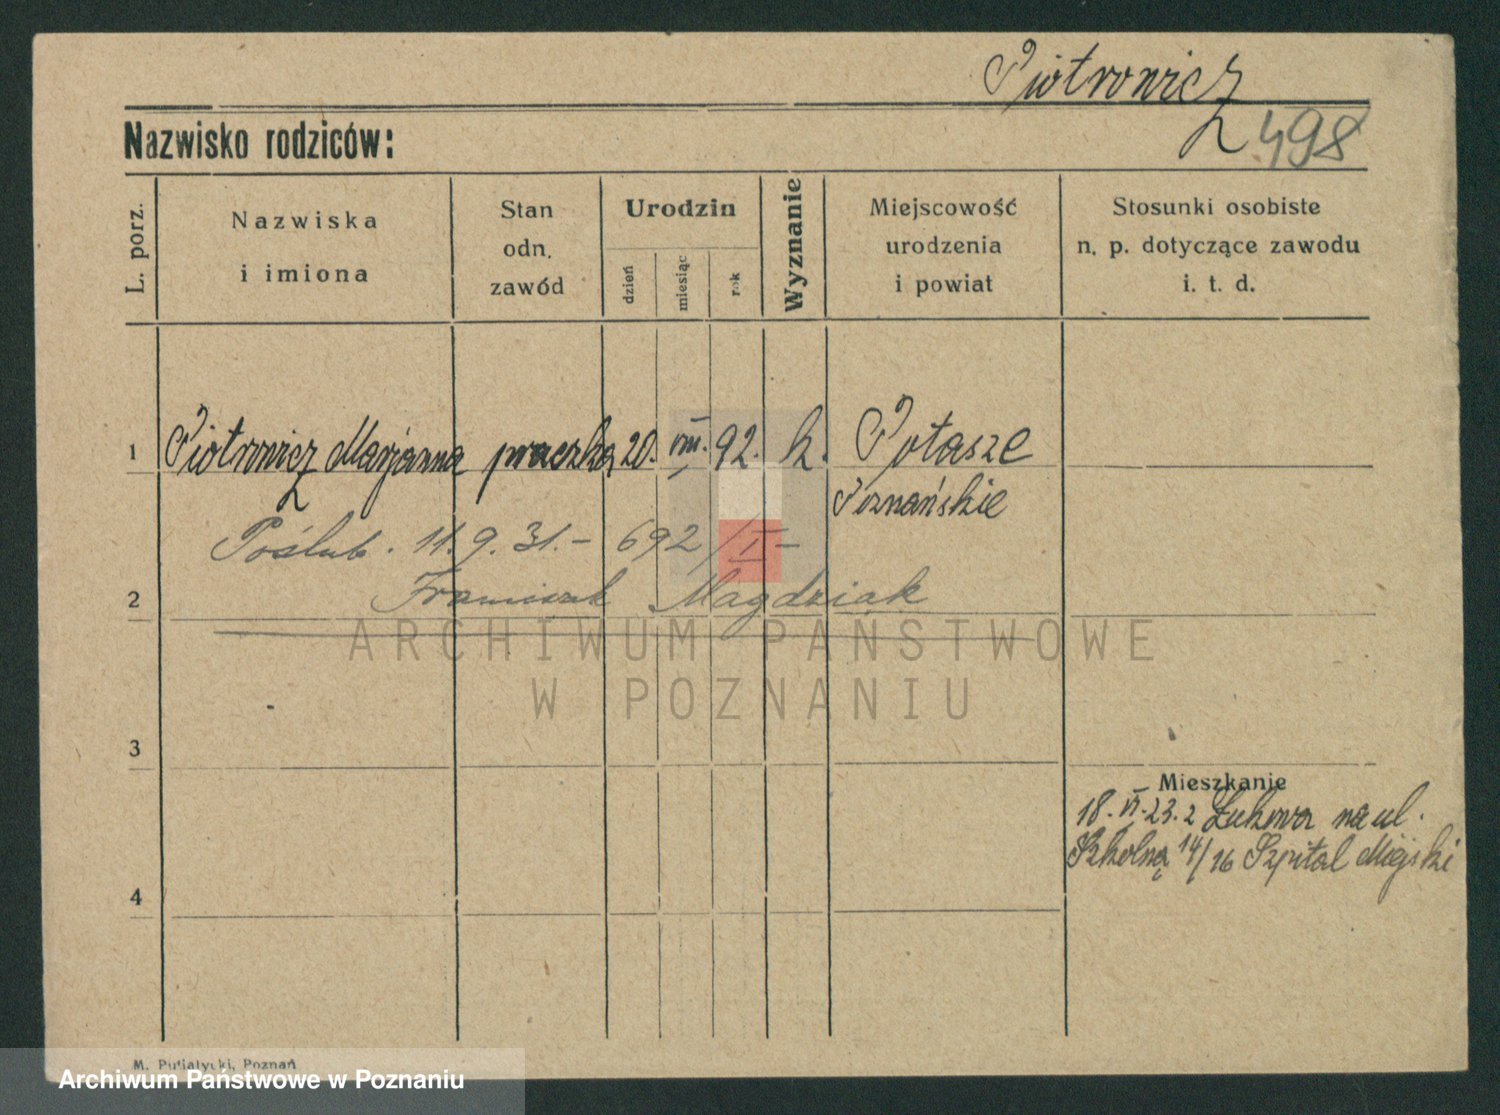 Piotrowicz
498
Nazwisko rodziców:
L. porz.
Nazwiska
i imiona
Stan
odn.
zawód
Urodzin
dzień
miesiąc
rok
Wyznanie
Miejscowość
urodzenia
i powiat
Stosunki osobiste
n. p. dotyczące zawodu
i. t. d.
1 Piotrowicz Marjanna praczka 20. VIII. 92. k. Potasze
Poznańskie
Poślub. 11. 9. 31. – 692 / I –
2 Franciszek Magdziak
ARCHIWUM PAŃSTWOWE
W POZNANIU
3
Mieszkanie
18. VI. 23. z Żukowa na ul.
Szkolną 14/16 Szpital Miejski
4
M. Putiatycki, Poznań
Archiwum Państwowe w Poznaniu